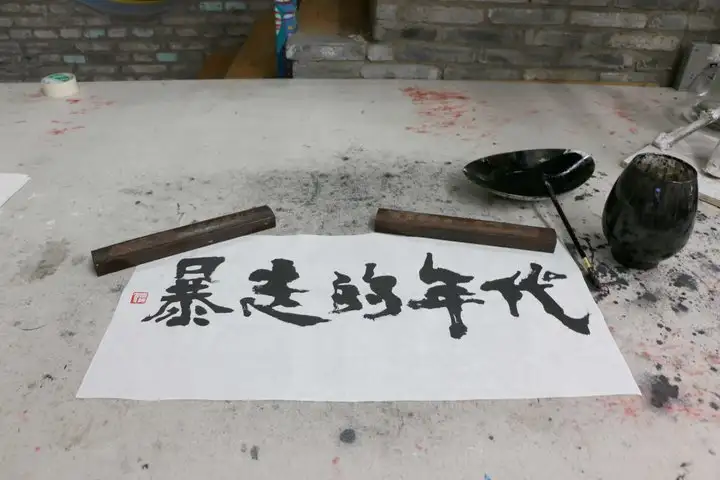 暴走的年代